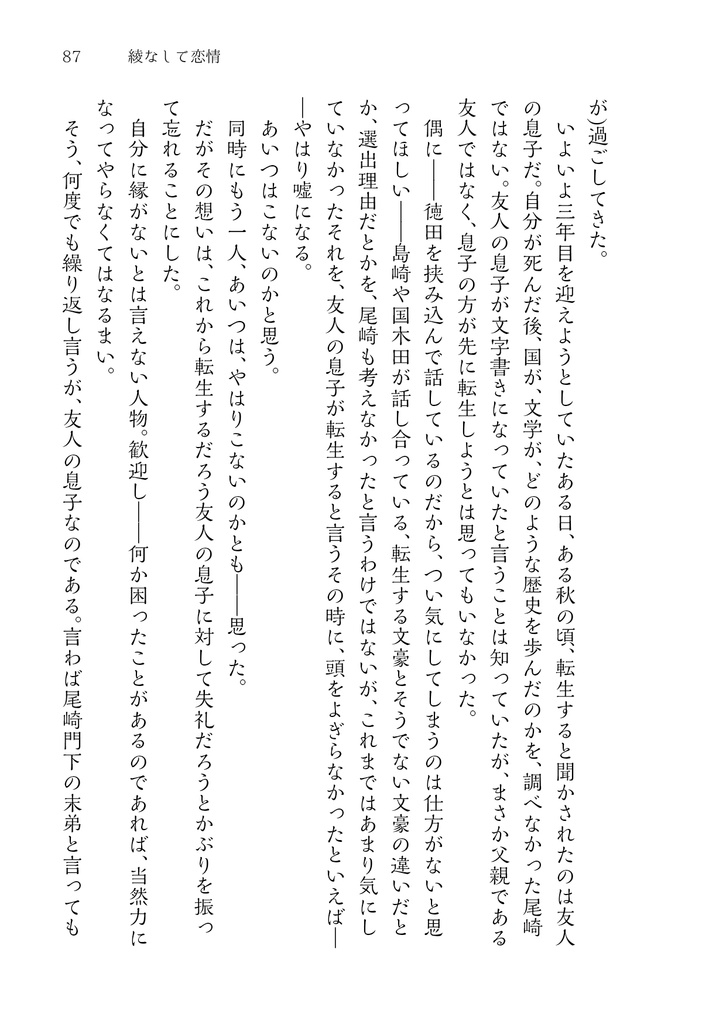 87
綾なして恋情
が)過ごしてきた。
いよいよ三年目を迎えようとしていたある日、ある秋の頃、転生すると聞かされたのは友人
の息子だ。自分が死んだ後、国が、文学が、どのような歴史を歩んだのかを、調べなかった尾崎
ではない。友人の息子が文字書きになっていたと言うことは知っていたが、まさか父親である
友人ではなく、息子の方が先に転生しようとは思ってもいなかった。
偶に――徳田を挟み込んで話しているのだから、つい気にしてしまうのは仕方がないと思
ってほしい――島崎や国木田が話し合っている、転生する文豪とそうでない文豪の違いだと
か、選出理由だとかを、尾崎も考えなかったと言うわけではないが、これまではあまり気にし
ていなかったそれを、友人の息子が転生すると言うその時に、頭をよぎらなかったといえば―
―やはり嘘になる。
あいつはこないのかと思う。
同時にもう一人、あいつは、やはりこないのかとも――思った。
だがその想いは、これから転生するだろう友人の息子に対して失礼だろうとかぶりを振っ
て忘れることにした。
自分に縁がないとは言えない人物。歓迎し――何か困ったことがあるのであれば、当然力に
なってやらなくてはなるまい。
そう、何度でも繰り返し言うが、友人の息子なのである。言わば尾崎門下の末弟と言っても